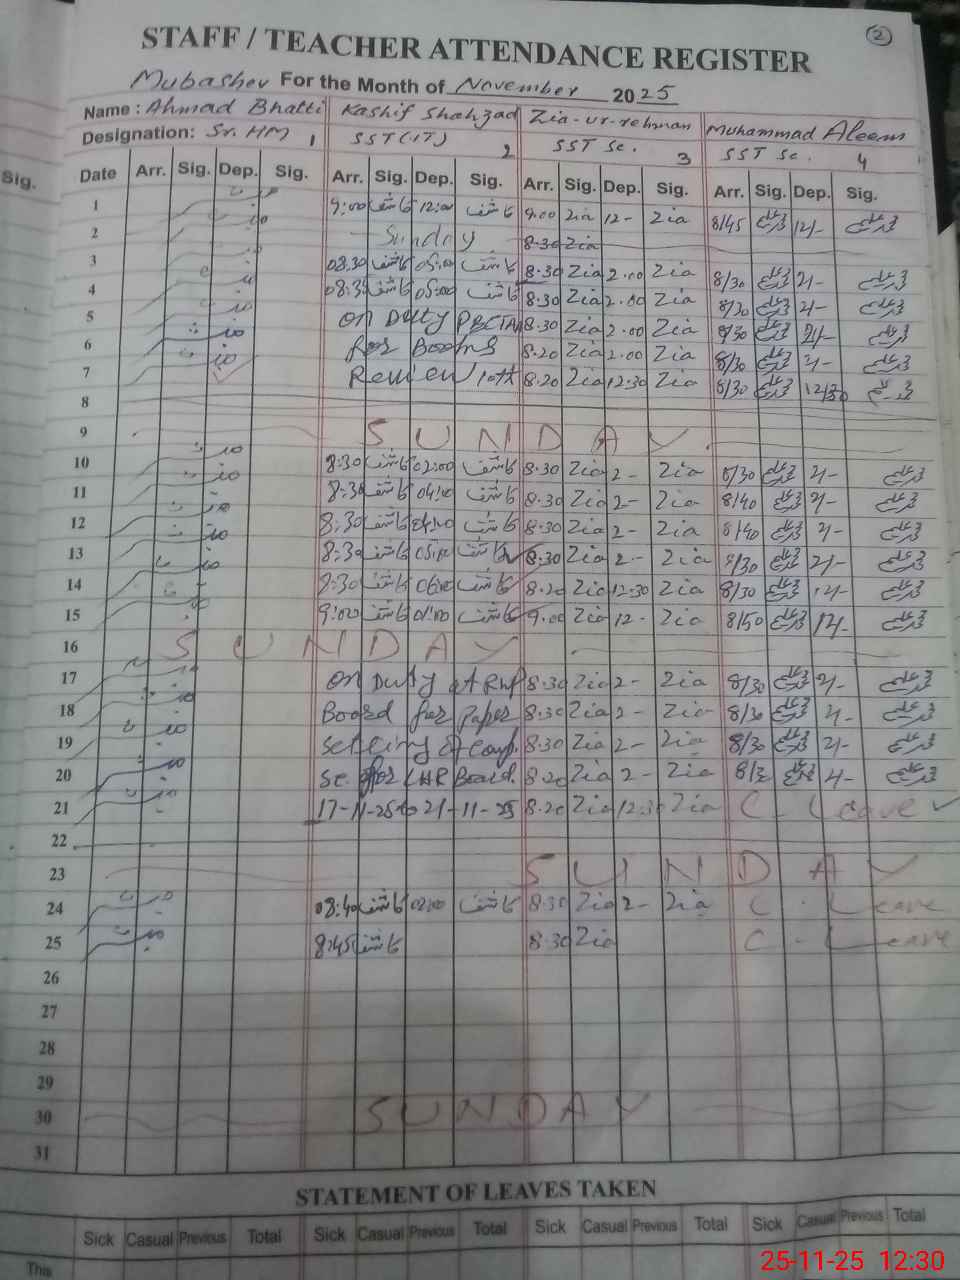 2
STAFF / TEACHER ATTENDANCE REGISTER
Mubasher For the Month of November 2025
Name : Ahmad Bhatti Kashif Shahzad Zia-ur-rehman Muhammad Aleem
Designation: Sr. HM 1 SST(IT) 2 SST Sc. 3 SST Sc. 4
Sig. Date Arr. Sig. Dep. Sig. Arr. Sig. Dep. Sig. Arr. Sig. Dep. Sig. Arr. Sig. Dep. Sig.
1 9:00 کاشف 12:00 کاشف 9.00 Zia 12- Zia 8/45 12/-
2 Sunday 8-30 Zia
3 08.30 کاشف 05:00 کاشف 8.30 Zia 2.00 Zia 8/30 2/-
4 08:35 کاشف 05:00 کاشف 8.30 Zia 2.00 Zia 8/30 2/-
5 On Duty PECTAA 8.30 Zia 2.00 Zia 8/30 2/-
6 for Books 8.20 Zia 2.00 Zia 8/30 2/-
7 Review 10th 8.20 Zia 12:30 Zia 8/30 12/30
8
9 SUNDAY
10 8:30 کاشف 02:00 کاشف 8.30 Zia 2- Zia 8/30 2/-
11 8:30 کاشف 04:00 کاشف 8.30 Zia 2- Zia 8/40 2/-
12 8:30 کاشف 04:00 کاشف 8.30 Zia 2- Zia 8/40 2/-
13 8:30 کاشف 05:00 کاشف 8.30 Zia 2- Zia 8/30 2/-
14 8:30 کاشف 06:00 کاشف 8.20 Zia 12-30 Zia 8/30 12/-
15 9:00 کاشف 01:00 کاشف 9.00 Zia 12- Zia 8/50 12/-
16 SUNDAY
17 On Duty at RWP 8-30 Zia 2- Zia 8/30 2/-
18 Board for Paper 8.30 Zia 2- Zia 8/30 2/-
19 setting of Comp. 8.30 Zia 2- Zia 8/30 2/-
20 Sc. for LHR Board. 8.20 Zia 2- Zia 2/-
21 17-11-25 to 21-11-25 8.20 Zia 12:30 Zia C - Leave
22
23 SUNDAY
24 08:40 کاشف 02:00 کاشف 8.30 Zia 2- Zia C - Leave
25 8:45 کاشف 8.30 Zia C - Leave
26
27
28
29
30 SUNDAY
31
STATEMENT OF LEAVES TAKEN
Sick Casual Previous Total Sick Casual Previous Total Sick Casual Previous Total Sick Casual Previous Total
This
25-11-25 12:30